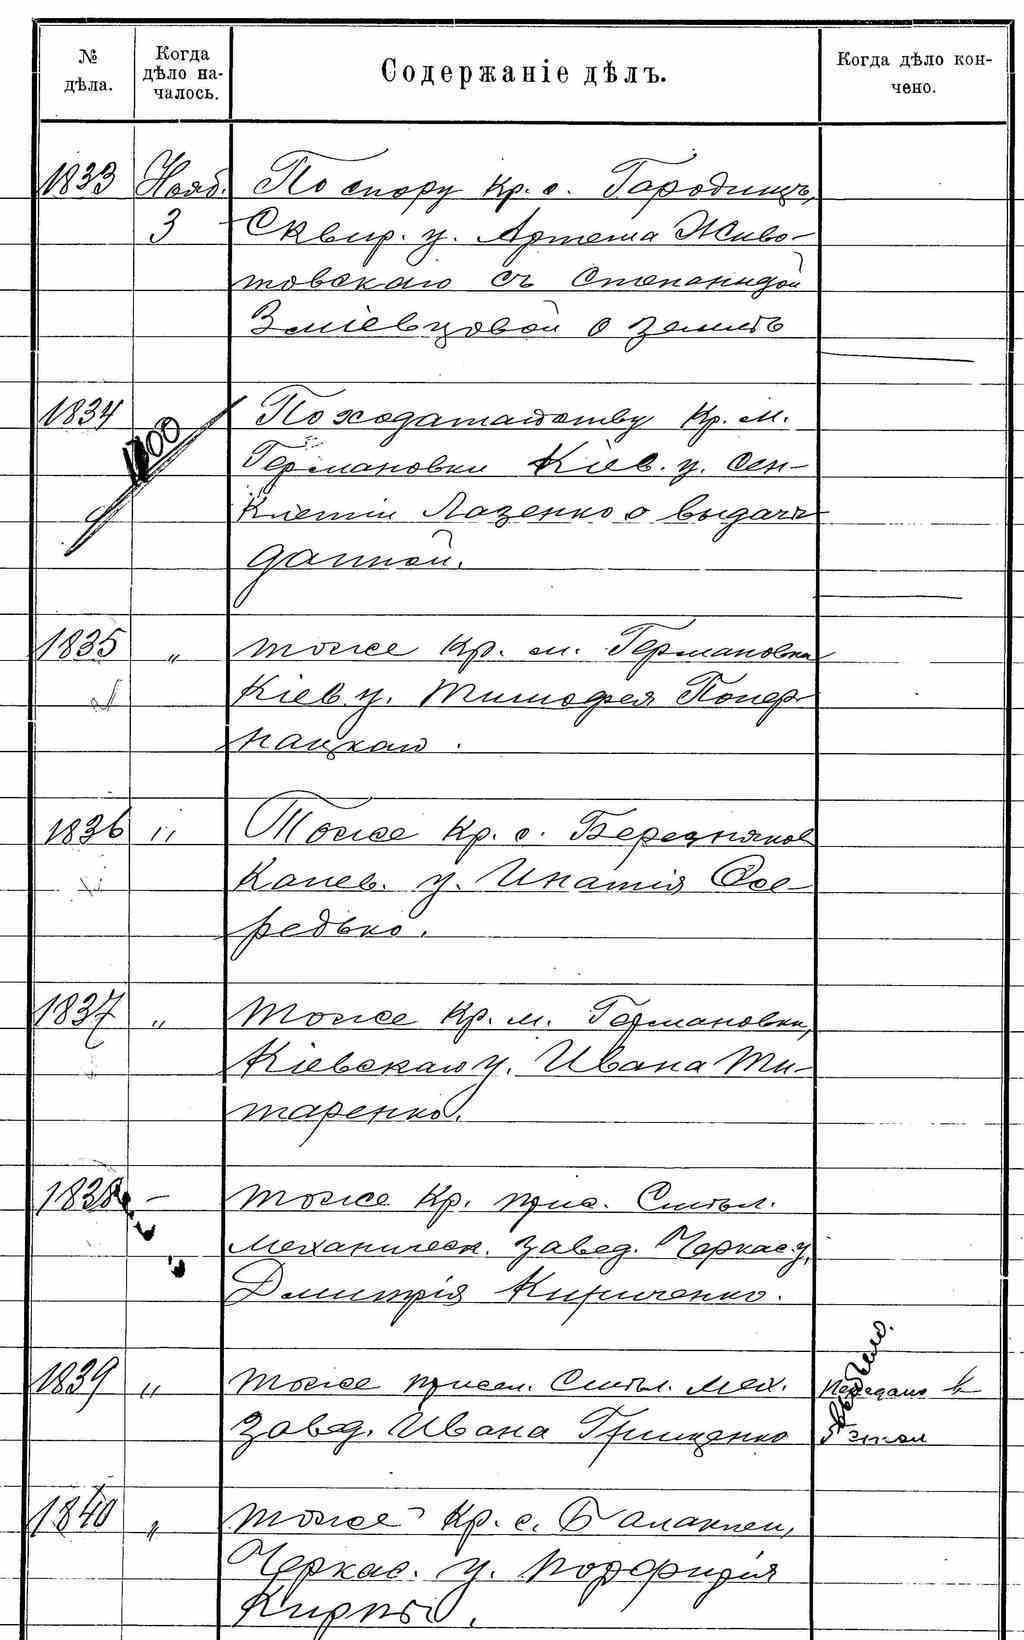 № дѣла.
Когда дѣло на-
чалось.
Содержаніе дѣлъ.
Когда дѣло кон-
чено.
1833 Нояб. По спору кр. с. Городищъ,
3 Сквир. у. Артема Живо-
товскаго съ Степанидой
Зміевцовой о землѣ
1834 По ходатайству кр. м.
1200
Германовки Кіев. у. Син-
клетіи Лазенко о выдачѣ
данной.
1835 „ тоже кр. м. Германовки
Кіев. у. Тимофея Попер-
нацкаго.
1836 „ Тоже кр. с. Березняков
Канев. у. Игнатія Осе-
редько.
1837 „ тоже кр. м. Германовки,
Кіевскаго у. Ивана Ти-
таренко.
1838 – тоже кр. прис. Смѣл.
механическ. завед. Черкас. у,
Дмитрія Кириченко.
1839 „ тоже присел. Смѣл. мех. Передано в
завед. Ивана Грищенко 5 стол
1840 „ тоже кр. с. Балаклеи,
Черкас. у. Порфирія
Кирпы.